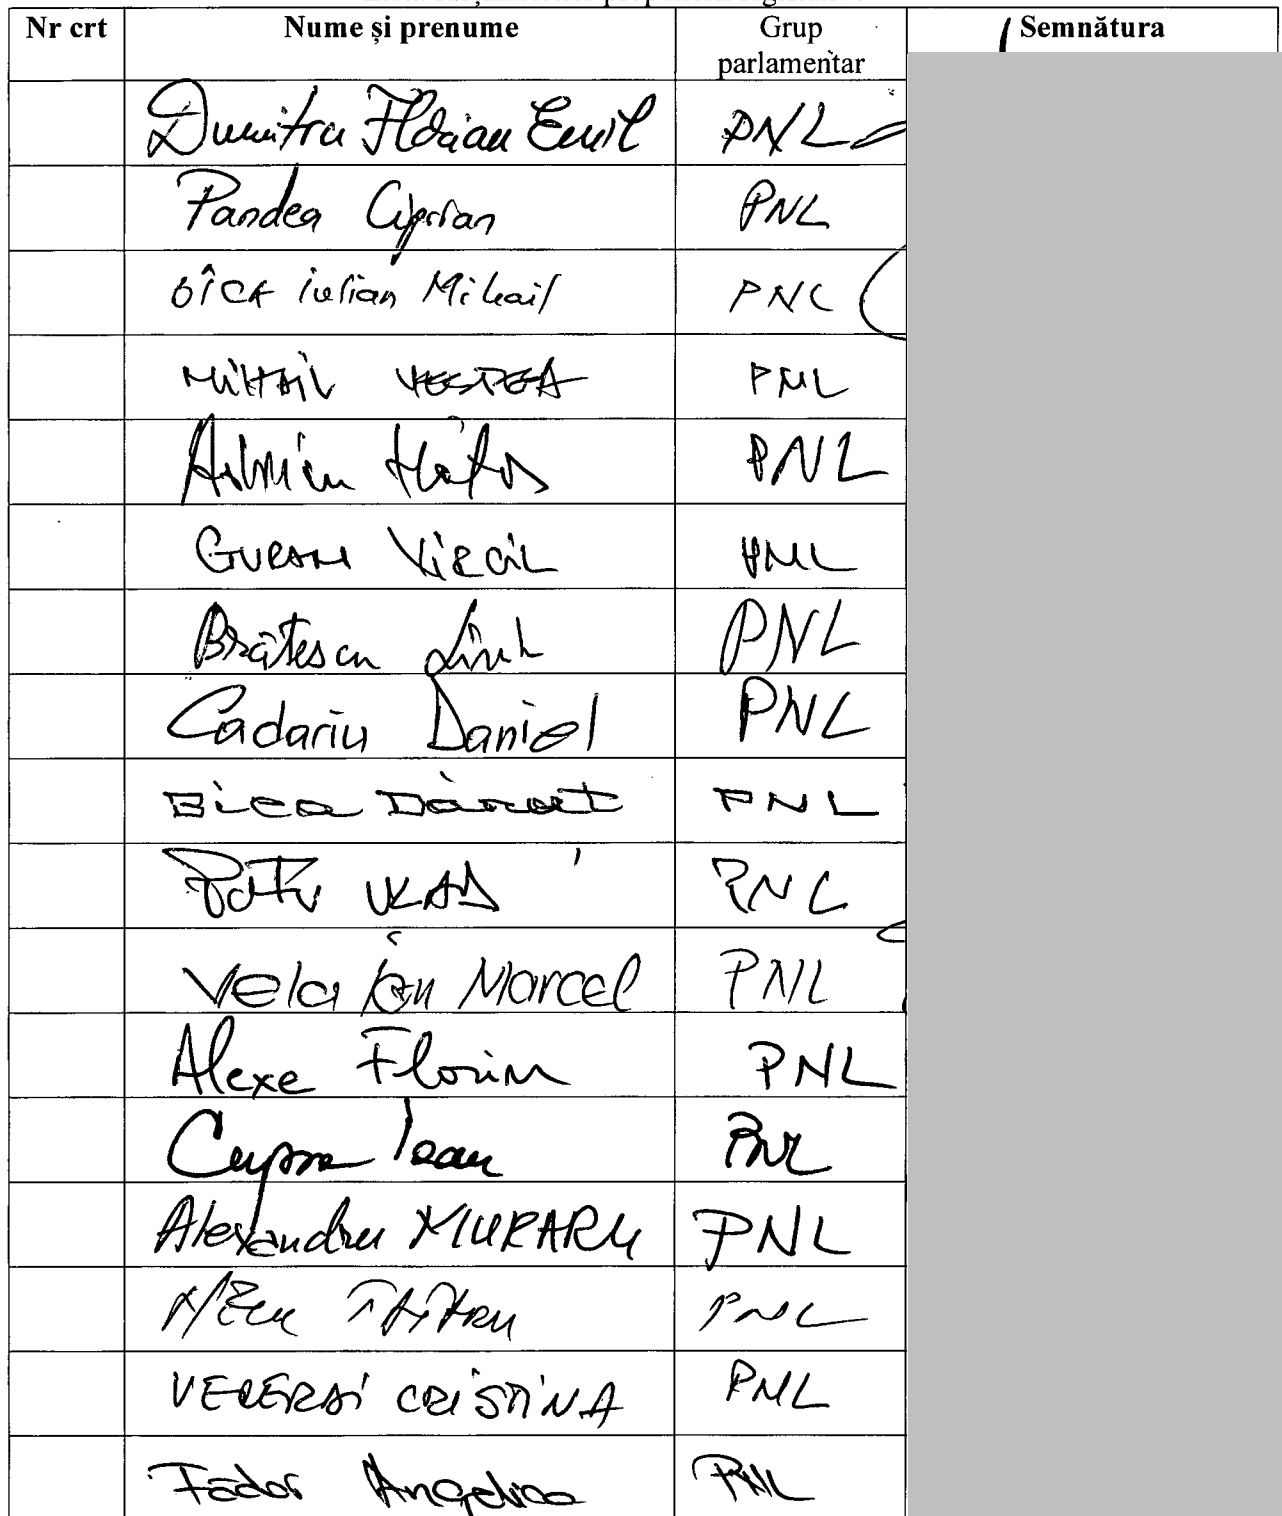 Nr crt Nume și prenume Grup parlamentar Semnătura
Dumitru Florian Emil PNL
Pandea Ciprian PNL
OÎCA Iulian Mihail PNL
MIHAIL VESTEA PNL
PNL
GURAN VIRGIL PNL
Brătescu PNL
Cadariu Daniel PNL
Bica Dănuț PNL
VLAD PNL
Vela Ion Marcel PNL
Alexe Florin PNL
Cupșa Ioan PNL
Alexandru MURARU PNL
TĂTARU PNL
CRISTINA PNL
Fădor Angelica PNL